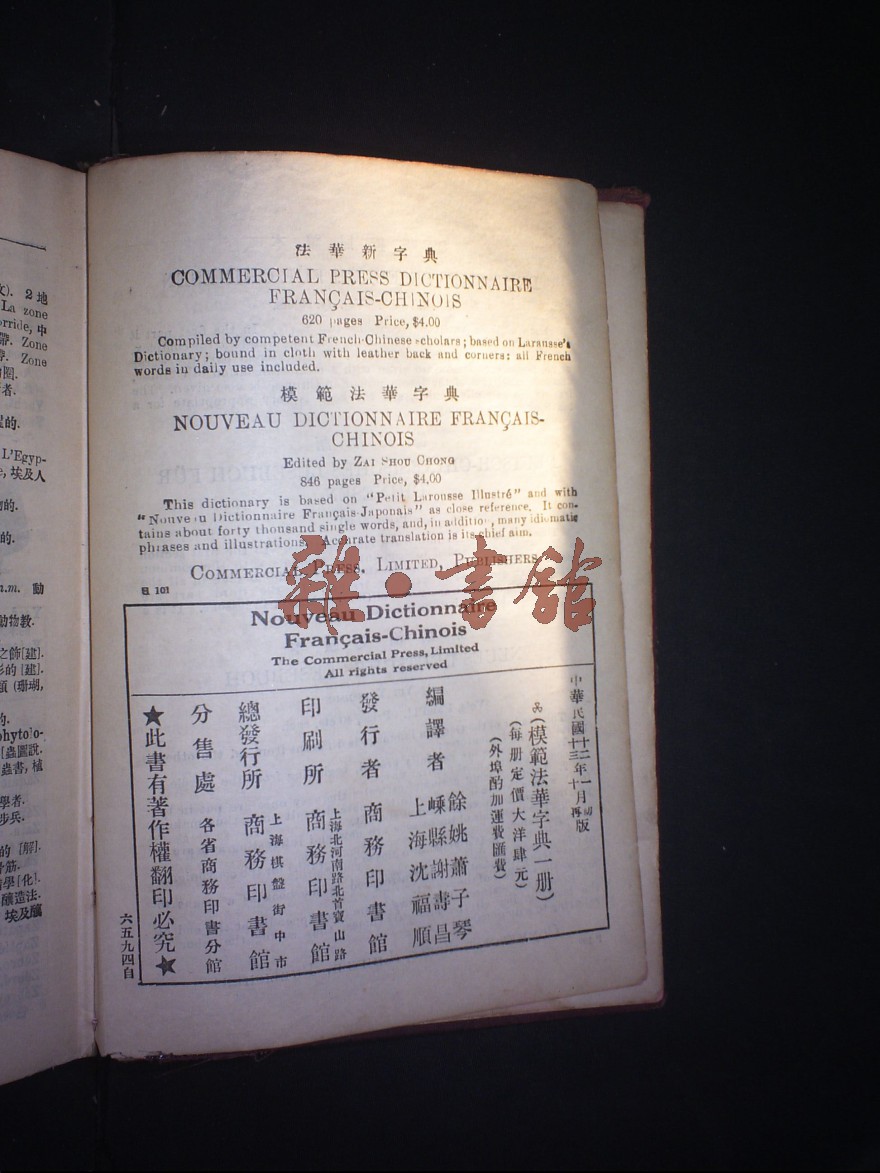 文). 2 地
La zone
帶. Zone
圈.
者.
的.
L'Egyp-
e, 埃及人
的.
的.
n.m. 動
動物教.
之飾[建].
形的 [建].
類 (珊瑚,
的.
phytolo-
[蟲圖說.
蟲書, 植
學者.
步兵.
的 [解].
骨筋.
學[化].
釀造法.
埃及釀
法華新字典
COMMERCIAL PRESS DICTIONNAIRE
FRANÇAIS-CHINOIS
620 pages Price, $4.00
Compiled by competent French-Chinese scholars; based on Larousse's
Dictionary; bound in cloth with leather back and corners: all French
words in daily use included.
模範法華字典
NOUVEAU DICTIONNAIRE FRANÇAIS-
CHINOIS
Edited by ZAI SHOU CHONG
846 pages Price, $4.00
This dictionary is based on "Petit Larousse Illustré" and with
"Nouveau Dictionnaire Français-Japonais" as close reference. It con-
tains about forty thousand single words, and, in addition, many idiomatic
phrases and illustrations. Accurate translation is its chief aim.
COMMERCIAL PRESS, LIMITED, PUBLISHERS
101
雜·書館
Nouveau Dictionnaire
Français-Chinois
The Commercial Press, Limited
All rights reserved
中華民國十二年一月初版
十三年十月再版
(模範法華字典一册)
(每册定價大洋肆元)
(外埠酌加運費匯費)
編譯者
餘姚蕭子琴
嵊縣謝壽昌
上海沈福順
發行者 商務印書館
印刷所 上海北河南路北首寶山路 商務印書館
總發行所 上海棋盤街中市 商務印書館
分售處 各省商務印書分館
★此書有著作權翻印必究★
六五九四自